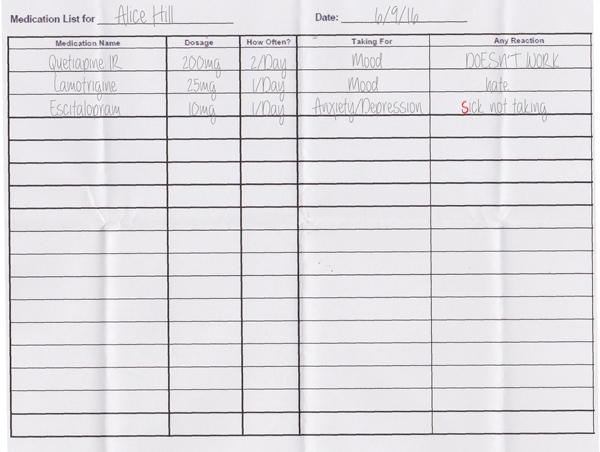 Medication List for Alice Hill Date: 6/9/16
Medication Name Dosage How Often? Taking For Any Reaction
Quetiapine IR 200mg 2/Day Mood DOESN'T WORK
Lamotrigine 25mg 1/Day Mood hate
Escitalopram 10mg 1/Day Anxiety/Depression Sick not taking